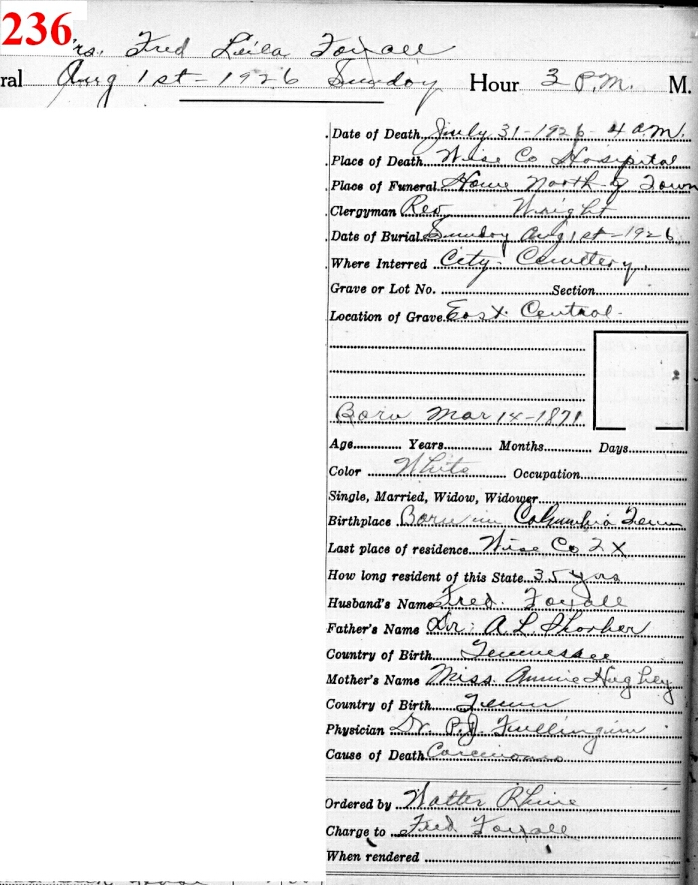 236
rs. Fred Leila Foxall
ral Aug 1st-1926 Sunday Hour 3 P.M. M.
Date of Death July 31-1926- 4 a.m.
Place of Death Wise Co Hospital
Place of Funeral Home North of Town
Clergyman Rev Wright
Date of Burial Sunday Aug 1st-1926
Where Interred City Cemetery.
Grave or Lot No. Section
Location of Grave East Central
Born Mar 14-1871
Age Years Months Days
Color White Occupation
Single, Married, Widow, Widower
Birthplace Born in Columbia Tenn
Last place of residence Wise Co TX
How long resident of this State 35 yrs
Husband's Name Fred. Foxall
Father's Name Dr. A L
Country of Birth Tennessee
Mother's Name Miss Annie Hughey
Country of Birth Tenn
Physician Dr. P.J. Fullingim
Cause of Death Carcinoma
Ordered by Walter Rhine
Charge to Fred Foxall
When rendered